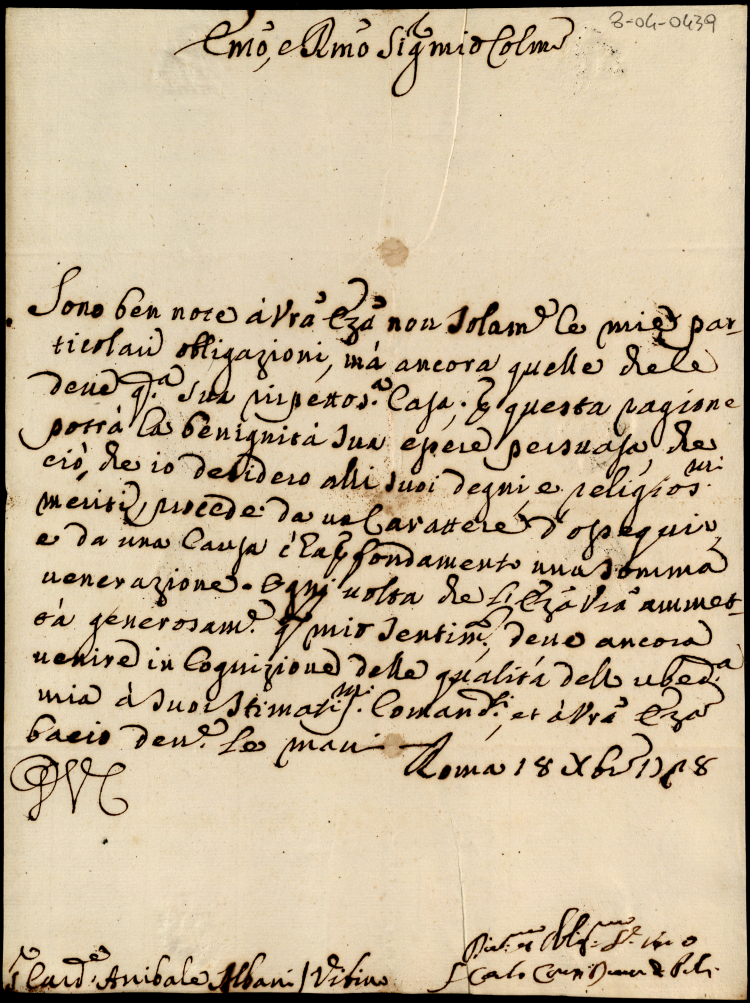 3-04-0439
Emo, e Rmo Sig mio Colmo
Sono ben note à Vra Eza non solame le mie par-
ticolari obligazioni, mà ancora quelle che le
deve qta sua rispettosa Casa; questa ragione
potrà la benignità sua essere persuasa, che
ciò, che io desidero alli suoi degni, e religiosmi
meriti, procede da un Carattere d'ossequio,
e da una Causa, fondamento una somma
venerazione. Ogni volta che l'Eza Vra ammet-
tà generosame qto mio sentimto, deve ancora
venire in Cognizione delle qualità dell ubeda
mia à suoi stimatismi Comandi, et à Vra Eza
bacio deve le mani
Roma 18 Xbre 1718
DVE
Sr Carde Anibale Albani / Urbino
Oblig Se vero